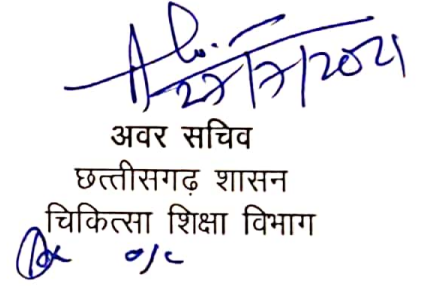 27/7/2021
अवर सचिव
छत्तीसगढ़ शासन
चिकित्सा शिक्षा विभाग
o/c